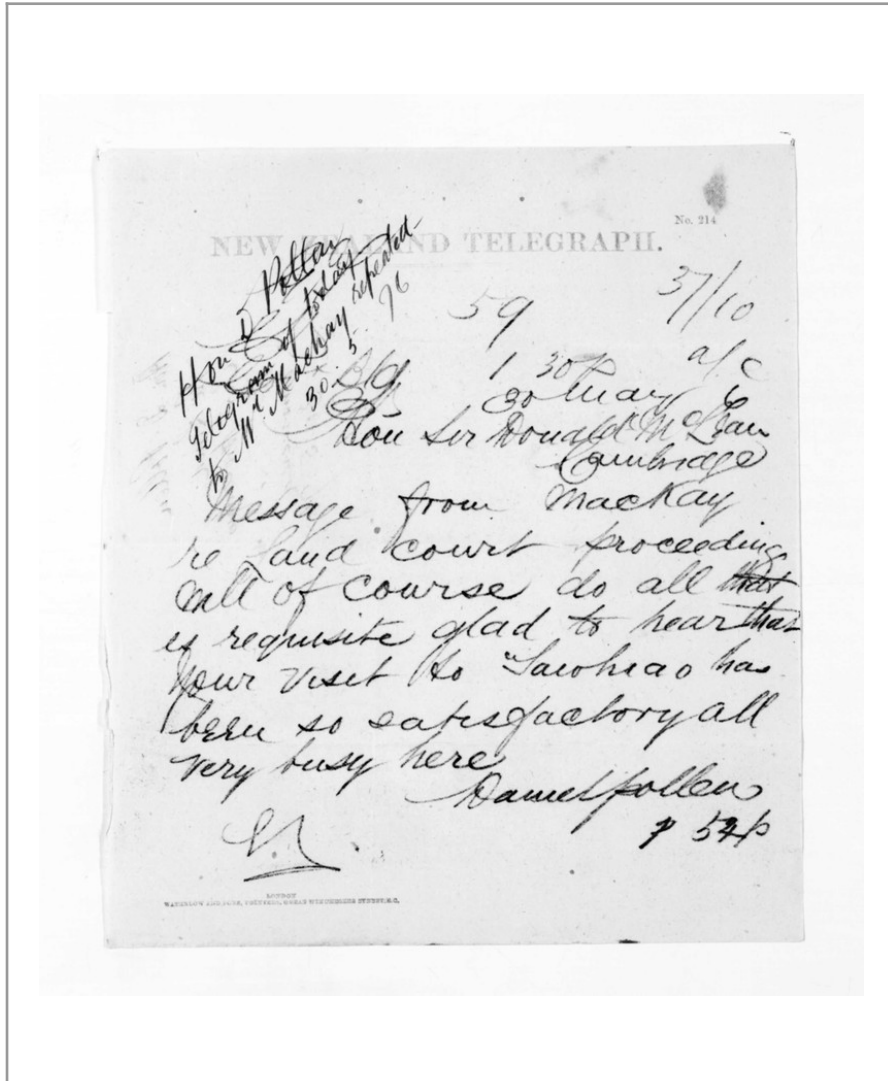 No. 214
NEW ZEALAND TELEGRAPH.
Hon D Pollen
Telegram of today
to Mr Mackay repeated
30. 5. 76
59
37/10
1 30p a/c
30 May 6
Hon Sir Donald McLean
Cambridge
Message from MacKay
re Land court proceedings
will of course do all that
is requisite glad to hear that
your visit to Tawhiao has
been so satisfactory all
very busy here
Daniel Pollen
LONDON